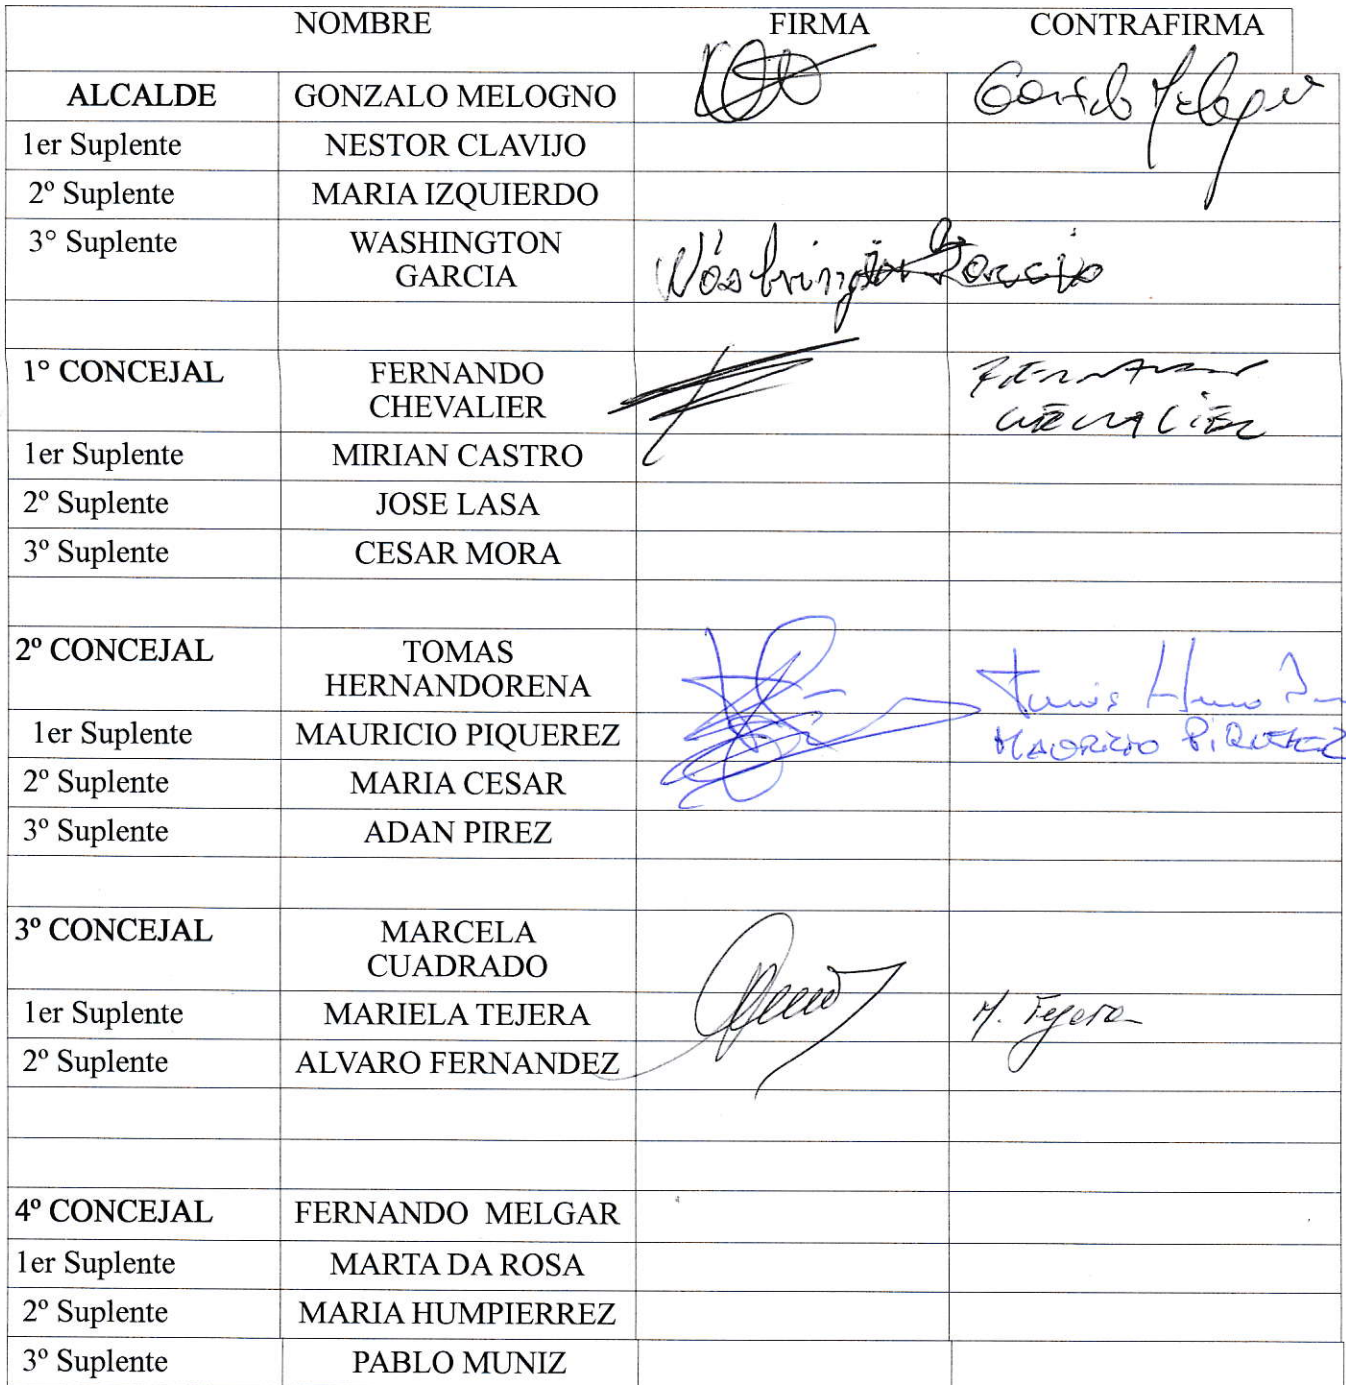 NOMBRE FIRMA CONTRAFIRMA
ALCALDE GONZALO MELOGNO Gonzalo Melogno
1er Suplente NESTOR CLAVIJO
2º Suplente MARIA IZQUIERDO
3° Suplente WASHINGTON
GARCIA Washington Garcia
1° CONCEJAL FERNANDO FERNANDO
CHEVALIER CHEVALIER
1er Suplente MIRIAN CASTRO
2º Suplente JOSE LASA
3º Suplente CESAR MORA
2º CONCEJAL TOMAS
HERNANDORENA Tomás
1er Suplente MAURICIO PIQUEREZ MAURICIO PIQUEREZ
2º Suplente MARIA CESAR
3º Suplente ADAN PIREZ
3º CONCEJAL MARCELA
CUADRADO
1er Suplente MARIELA TEJERA M. Tejera
2º Suplente ALVARO FERNANDEZ
4º CONCEJAL FERNANDO MELGAR
1er Suplente MARTA DA ROSA
2º Suplente MARIA HUMPIERREZ
3º Suplente PABLO MUNIZ